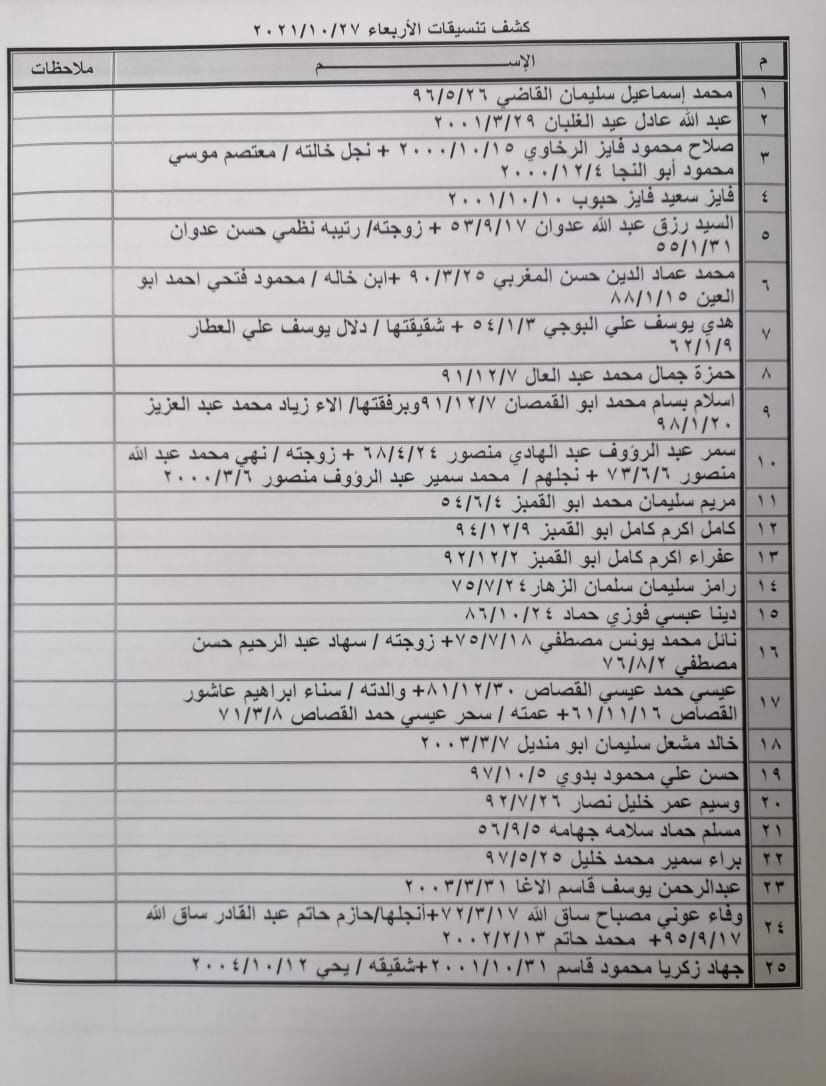 كشف تنسيقات الأربعاء ٢٠٢١/١٠/٢٧
م الإســـــــــــــــــــم ملاحظات
١ محمد إسماعيل سليمان القاضي ٩٦/٥/٢٦
٢ عبد الله عادل عيد الغلبان ٢٠٠١/٣/٢٩
٣ صلاح محمود فايز الرخاوي ٢٠٠٠/١٠/١٥ + نجل خالته / معتصم موسي
محمود أبو النجا ٢٠٠٠/١٢/٤
٤ فايز سعيد فايز حبوب ٢٠٠١/١٠/١٠
٥ السيد رزق عبد الله عدوان ٥٣/٩/١٧ + زوجته/ رتيبه نظمي حسن عدوان
٥٥/١/٣١
٦ محمد عماد الدين حسن المغربي ٩٠/٣/٢٥ +ابن خاله / محمود فتحي احمد ابو
العين ٨٨/١/١٥
٧ هدي يوسف علي البوجي ٥٤/١/٣ + شقيقتها / دلال يوسف علي العطار
٦٢/١/٩
٨ حمزة جمال محمد عبد العال ٩١/١٢/٧
٩ اسلام بسام محمد ابو القمصان ٩١/١٢/٧وبرفقتها/ الاء زياد محمد عبد العزيز
٩٨/١/٢٠
١٠ سمر عبد الرؤوف عبد الهادي منصور ٦٨/٤/٢٤ + زوجته / نهي محمد عبد الله
منصور ٧٣/٦/٦ + نجلهم / محمد سمير عبد الرؤوف منصور ٢٠٠٠/٣/٦
١١ مريم سليمان محمد ابو القمبز ٥٤/٦/٤
١٢ كامل اكرم كامل ابو القمبز ٩٤/١٢/٩
١٣ عفراء اكرم كامل ابو القمبز ٩٢/١٢/٢
١٤ رامز سليمان سلمان الزهار ٧٥/٧/٢٤
١٥ دينا عيسي فوزي حماد ٨٦/١٠/٢٤
١٦ نائل محمد يونس مصطفي ٧٥/٧/١٨+ زوجته / سهاد عبد الرحيم حسن
مصطفي ٧٦/٨/٢
١٧ عيسي حمد عيسي القصاص ٨١/١٢/٣٠+ والدته / سناء ابراهيم عاشور
القصاص ٦١/١١/١٦+ عمته / سحر عيسي حمد القصاص ٧١/٣/٨
١٨ خالد مشعل سليمان ابو منديل ٢٠٠٣/٣/٧
١٩ حسن علي محمود بدوي ٩٧/١٠/٥
٢٠ وسيم عمر خليل نصار ٩٢/٧/٢٦
٢١ مسلم حماد سلامه جهامه ٥٦/٩/٥
٢٢ براء سمير محمد خليل ٩٧/٥/٢٥
٢٣ عبدالرحمن يوسف قاسم الأغا ٢٠٠٣/٣/٣١
٢٤ وفاء عوني مصباح ساق الله ٧٢/٣/١٧+أنجلها/حازم حاتم عبد القادر ساق الله
٩٥/٩/١٧+ محمد حاتم ٢٠٠٢/٢/١٣
٢٥ جهاد زكريا محمود قاسم ٢٠٠١/١٠/٣١+شقيقه / يحي ٢٠٠٤/١٠/١٢